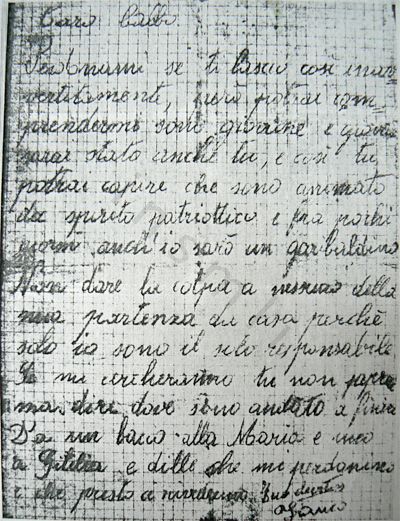 Caro babbo
Perdonami se ti lascio così inav
vertitamente, però potrai com
prendermi sono giovine e giovi
sarai stato anche tu, e così tu
potrai capire che sono animato
da spirito patriottico e fra pochi
giorni anch'io sarò un garibaldino
Non dare la colpa a nessuno della
mia partenza da casa perchè
solo io sono il solo responsabile
Se mi cercheranno tu non
mai dire dove sono andato a finire
Da un bacio alla Maria e uno
a e dille che mi perdonino
e che presto ci rivedremo